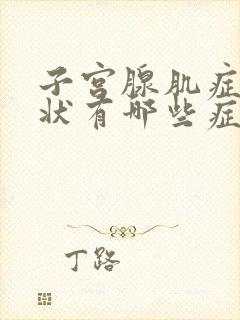 子宫腺肌症
状有哪些症
丁路